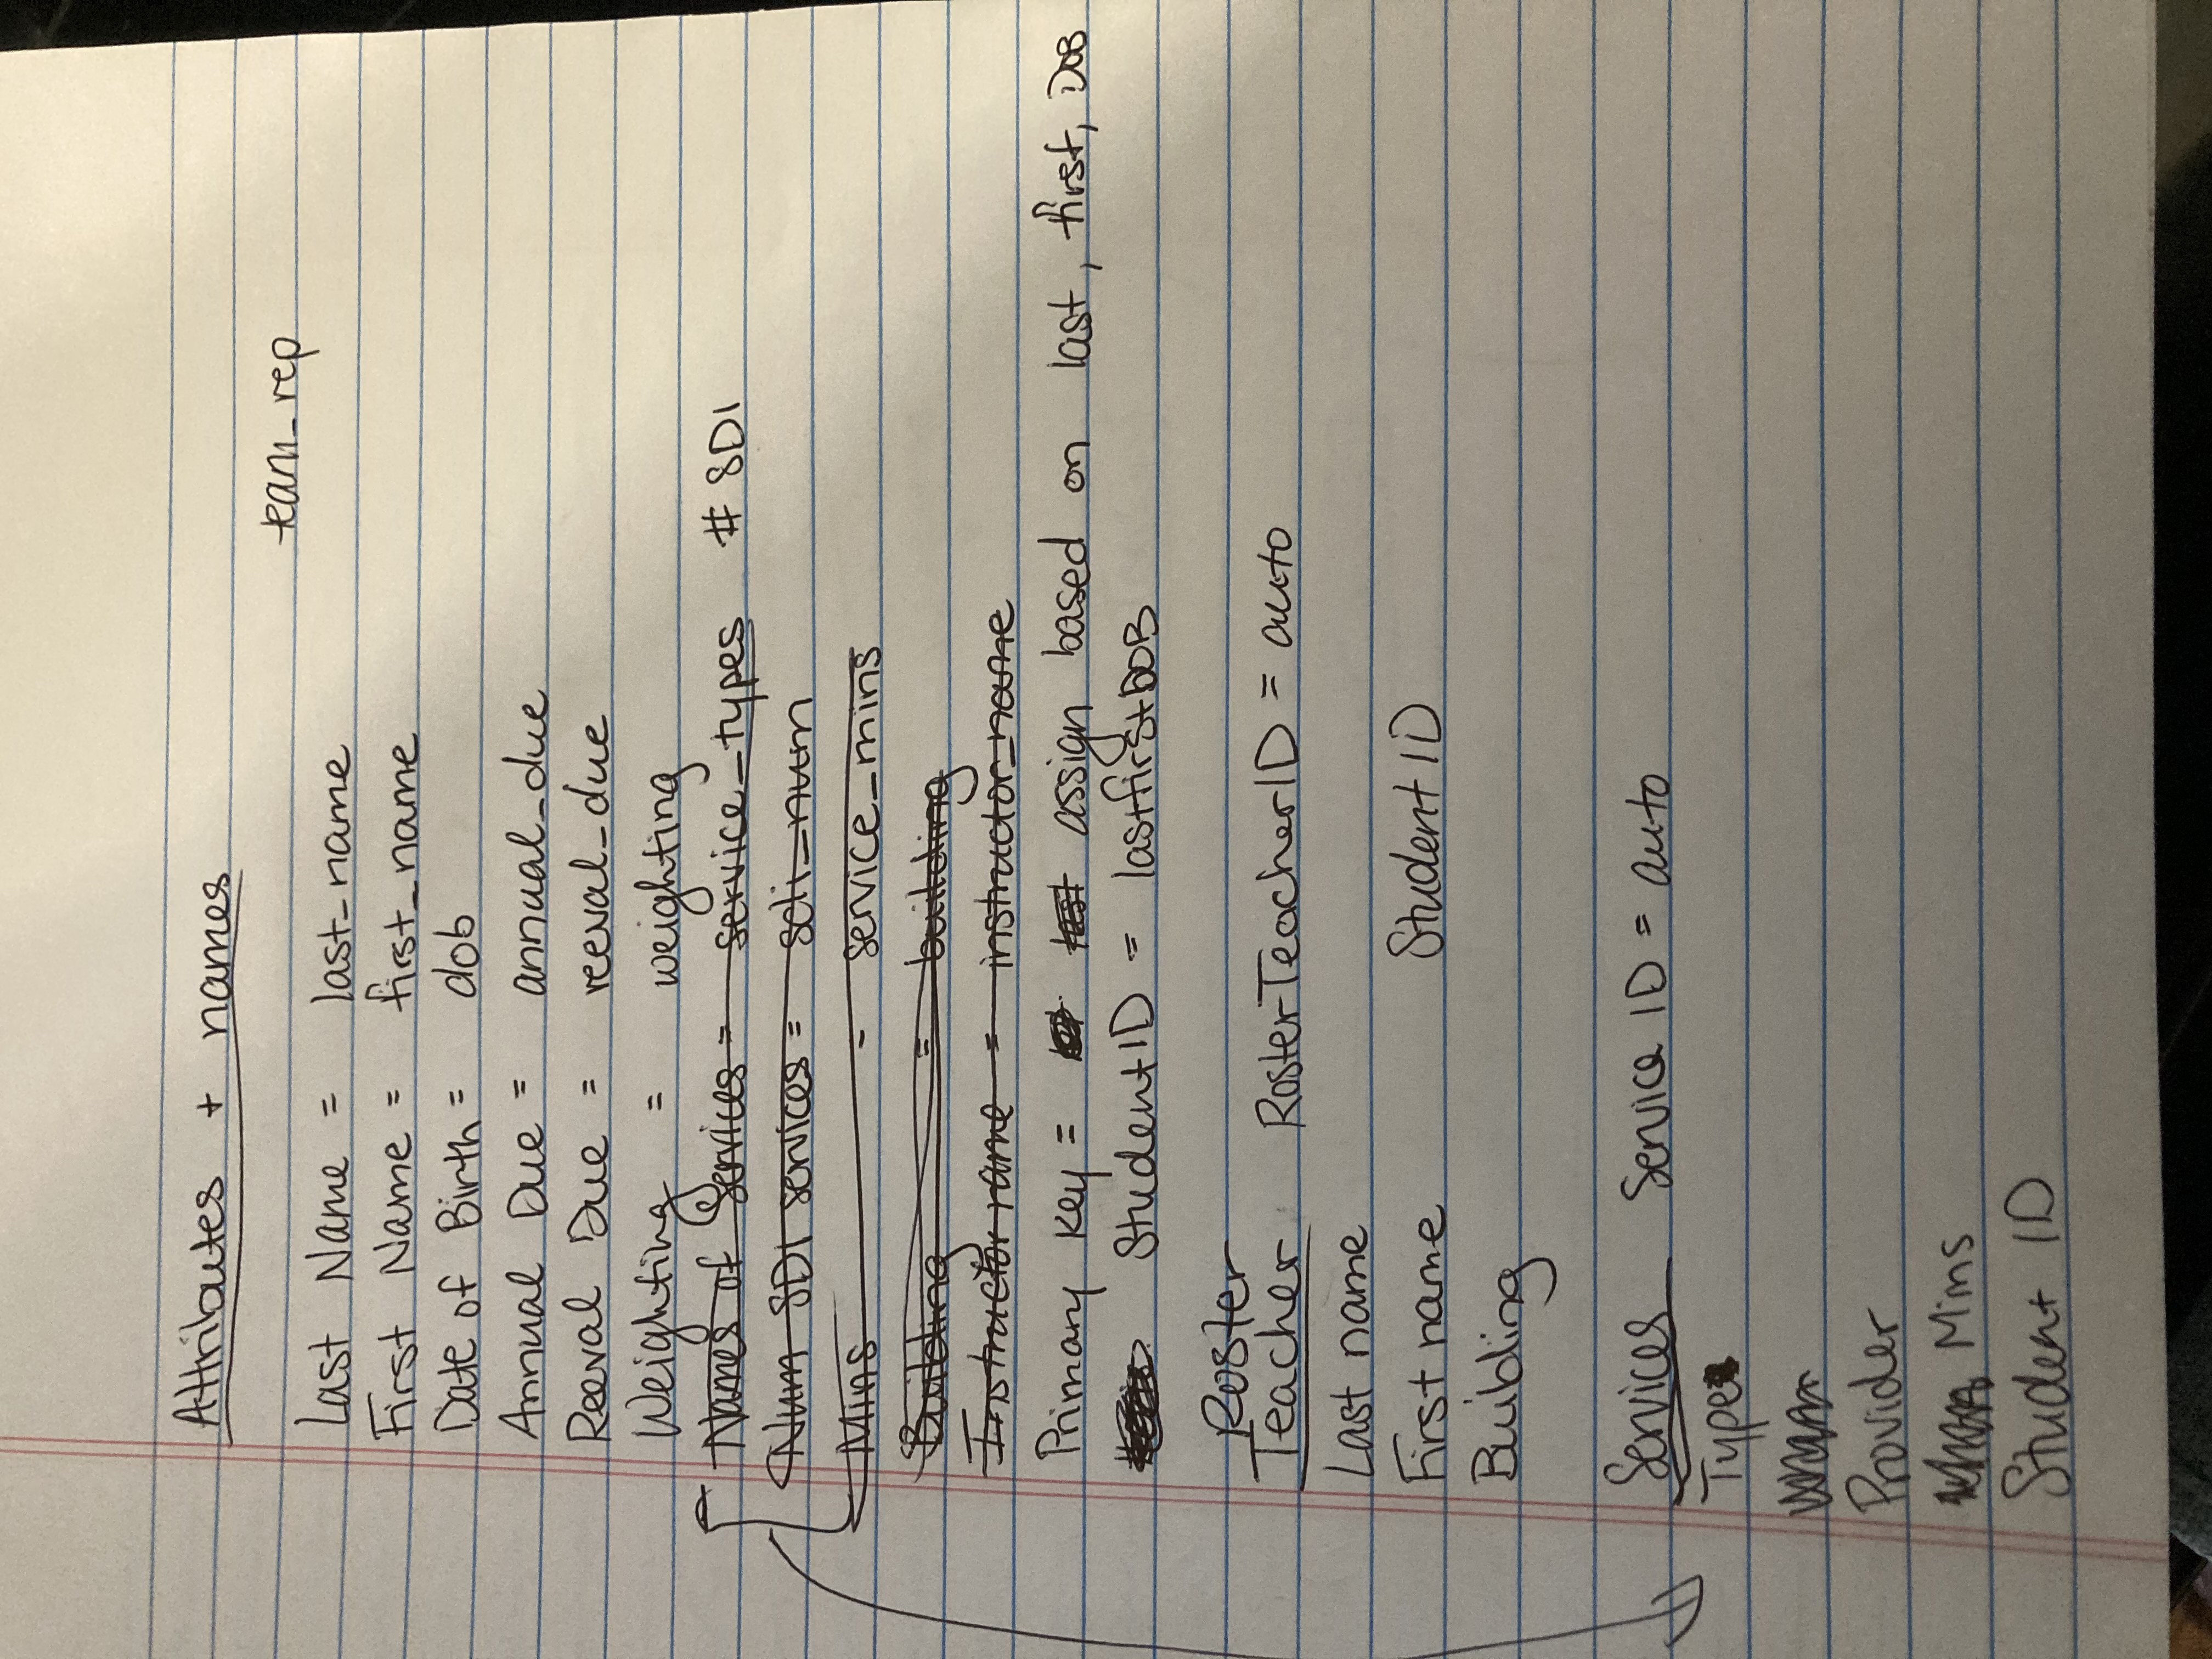 Attributes + names
team_rep
Last Name = last_name
First Name = first_name
Date of Birth = dob
Annual Due = annual_due
Reeval Due = reeval_due
Weighting = weighting
Names of Services = service_types # SDI
Num SDI services = sdi_num
Mins - service_mins
Building = building
Instructor name = instructor_name
Primary Key = assign based on last, first, DOB
StudentID = lastfirstDOB
Roster
Teacher RosterTeacherID = auto
Last name
First name Student ID
Building
Services Service ID = auto
Type
Provider
Mins
Student ID